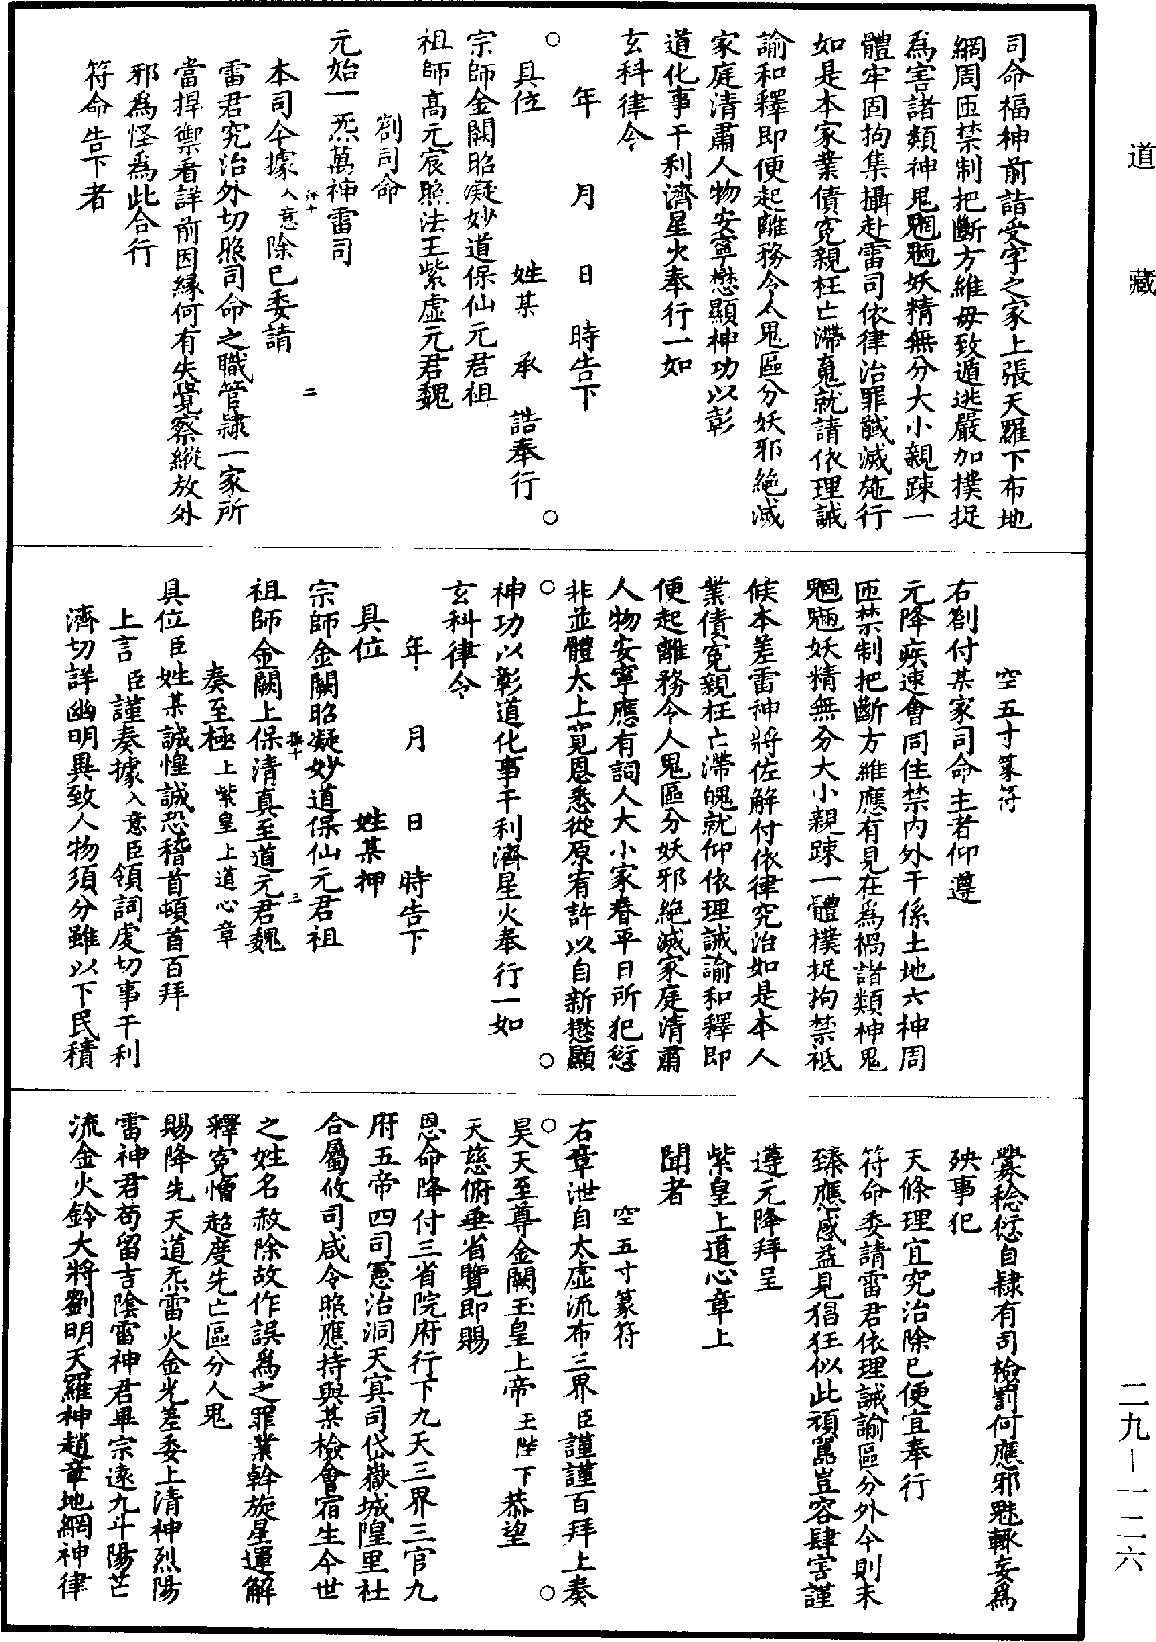 道藏
司命福神前詣受字之家上張天羅下布地
網周匝禁制把斷方維毋致遁逃嚴加撲捉
爲害諸類神鬼魍魎妖精無分大小親踈一
體牢固拘集攝赴雷司依律治罪馘滅施行
如是本家業債寃親枉亡滯䰟就請依理誠
諭和釋即便起離務令人鬼區分妖邪絶滅
家庭清肅人物安寧懋顯神功以彰
道化事干利濟星火奉行一如
玄科律令
年 月 日 時告下
○ 具位 姓某 承 誥奉行 ○
宗師金闕昭凝妙道保仙元君祖
祖師高元宸照法王紫虛元君魏
劄司命
元始一炁萬神雷司
本司今據入意除已委請 二
雷君究治外切照司命之職管隷一家所
當捍禦看詳前因緣何有失覺察縱放外
邪爲怪爲此合行
符命告下者
空五寸篆符
右劄付某家司命主者仰遵
元降疾速會同住禁內外干係土地六神周
匝禁制把斷方維應有見在爲禍諸類神鬼
魍魎妖精無分大小親踈一體撲捉拘禁祗
候本差雷神將佐解付依律究治如是本人
業債寃親枉亡滯魄就仰依理誠諭和釋即
便起離務令人鬼區分妖邪絶滅家庭清肅
人物安寧應有詞人大小家眷平日所犯愆
非並體太上寬恩悉從原宥許以自新懋顯
○ ○
神功以彰道化事干利濟星火奉行一如
玄科律令
年 月 日 時告下
具位 姓某押
宗師金闕昭凝妙道保仙元君祖
三
祖師金闕上保清真至道元君魏
奏至極上紫皇上道心章
具位臣姓某誠惶誠恐稽首頓首百拜
上言臣謹奏據入意臣領詞虔切事干利
濟切詳幽明異致人物須分雖以下民積
釁稔愆自隷有司檢罰何應邪魅輙妄爲
殃事犯
天條理宜究治除已便宜奉行
符命委請雷君依理誠諭區分外今則未
臻應感益見猖狂似此頑嚚豈容肆害謹
遵元降拜呈
紫皇上道心章上
聞者
空五寸篆符
右章泄自太虛流布三界臣謹謹百拜上奏
○ ○
昊天至尊金闕玉皇上帝玉陛下恭望
天慈俯垂省覽即賜
恩命降付三省院府行下九天三界三官九
府五帝四司憲治洞天㝠司岱嶽城隍里社
合屬攸司咸令照應持與某檢會宿生今世
之姓名赦除故作誤爲之罪業斡旋星運解
釋寃憎超度先亡區分人鬼
賜降先天道炁雷火金光差委上清神烈陽
雷神君苟留吉陰雷神君畢宗遠九斗陽芒
流金火鈴大將劉明天羅神趙章地網神律
二九-一二六